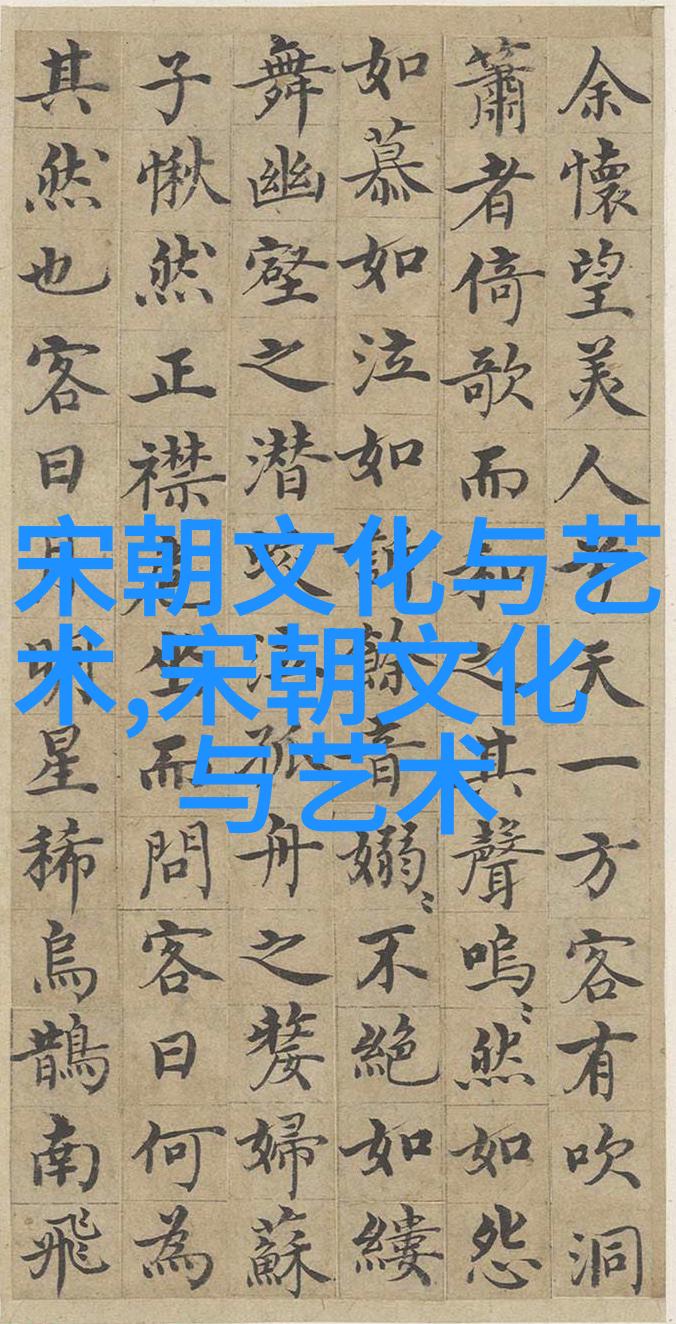 余懷望美人兮天一方客有吹洞
簫者倚歌而和之其聲嗚〻然如怨
如慕如泣如訴餘音嫋〻不絕如縷
舞幽壑之潛蛟泣孤舟之嫠婦蘇
子愀然正襟危坐而問客曰何為
其然也客曰月明星稀烏鵲南飛
宋朝文化与艺
术,宋朝文化
与艺术